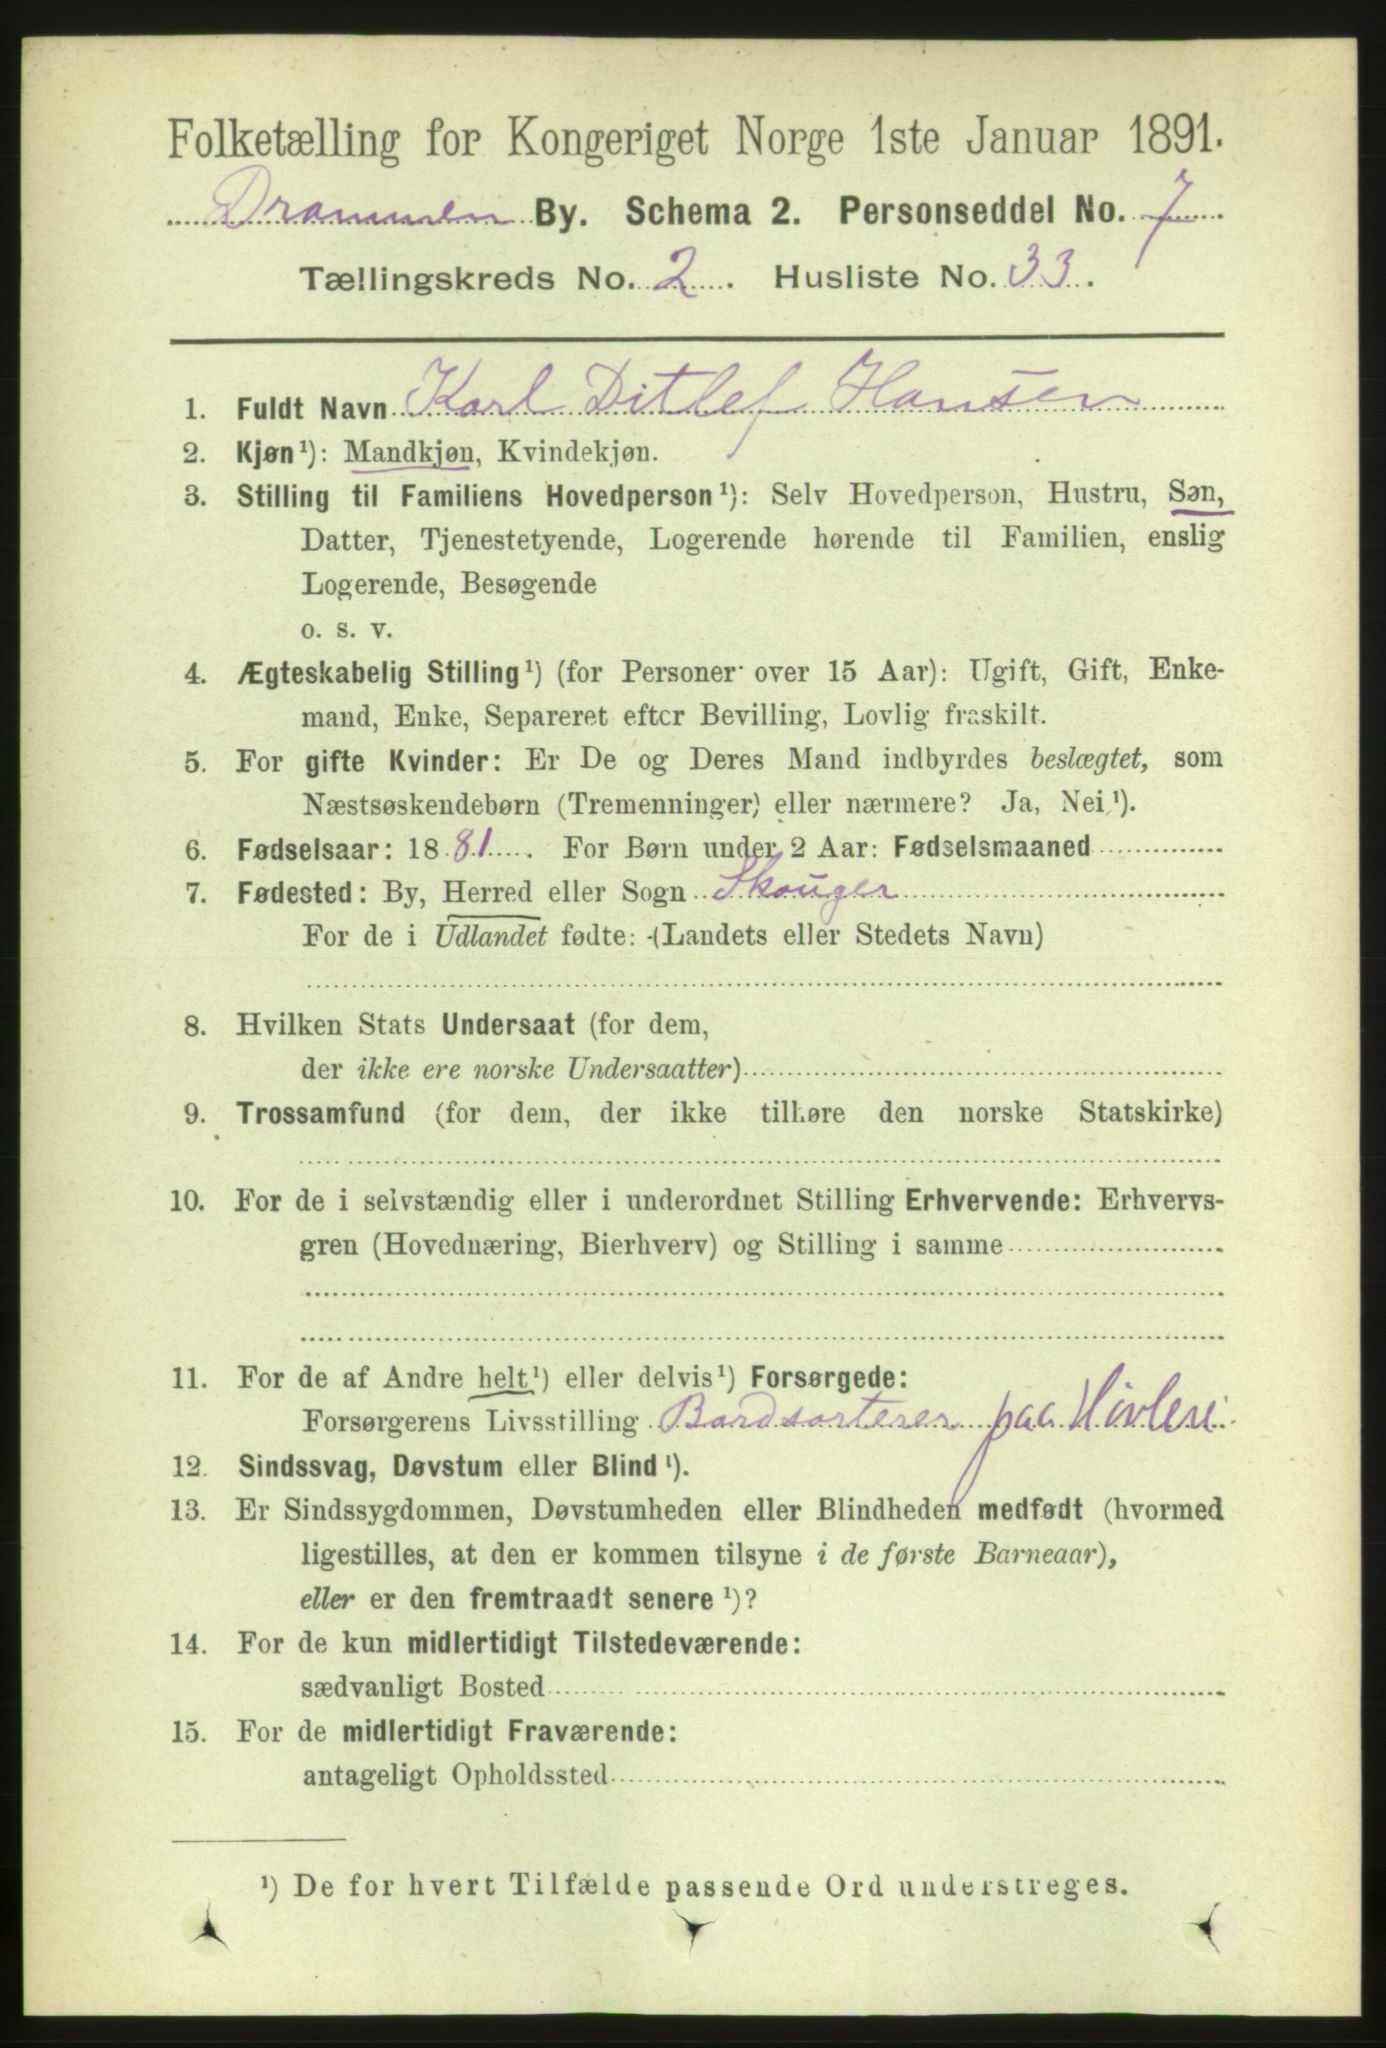 Folketælling for Kongeriget Norge 1ste Januar 1891.
Drammen By. Schema 2. Personseddel No. 7
Tællingskreds No. 2. Husliste No. 33.
1. Fuldt Navn Karl Ditlef Hansen
2. Kjøn¹): Mandkjøn, Kvindekjøn.
3. Stilling til Familiens Hovedperson¹): Selv Hovedperson, Hustru, Søn,
Datter, Tjenestetyende, Logerende hørende til Familien, enslig
Logerende, Besøgende
o. s. v.
4. Ægteskabelig Stilling¹) (for Personer over 15 Aar): Ugift, Gift, Enke-
mand, Enke, Separeret efter Bevilling, Lovlig fraskilt.
5. For gifte Kvinder: Er De og Deres Mand indbyrdes beslægtet, som
Næstsøskendebørn (Tremenninger) eller nærmere? Ja, Nei¹).
6. Fødselsaar: 1881. For Børn under 2 Aar: Fødselsmaaned
7. Fødested: By, Herred eller Sogn Skouger
For de i Udlandet fødte: (Landets eller Stedets Navn)
8. Hvilken Stats Undersaat (for dem,
der ikke ere norske Undersaatter)
9. Trossamfund (for dem, der ikke tilhøre den norske Statskirke)
10. For de i selvstændig eller i underordnet Stilling Erhvervende: Erhvervs-
gren (Hovednæring, Bierhverv) og Stilling i samme
11. For de af Andre helt¹) eller delvis¹) Forsørgede:
Forsørgerens Livsstilling Bordsorterer paa Høvleri
12. Sindssvag, Døvstum eller Blind¹).
13. Er Sindssygdommen, Døvstumheden eller Blindheden medfødt (hvormed
ligestilles, at den er kommen tilsyne i de første Barneaar),
eller er den fremtraadt senere¹)?
14. For de kun midlertidigt Tilstedeværende:
sædvanligt Bosted
15. For de midlertidigt Fraværende:
antageligt Opholdssted
¹) De for hvert Tilfælde passende Ord understreges.